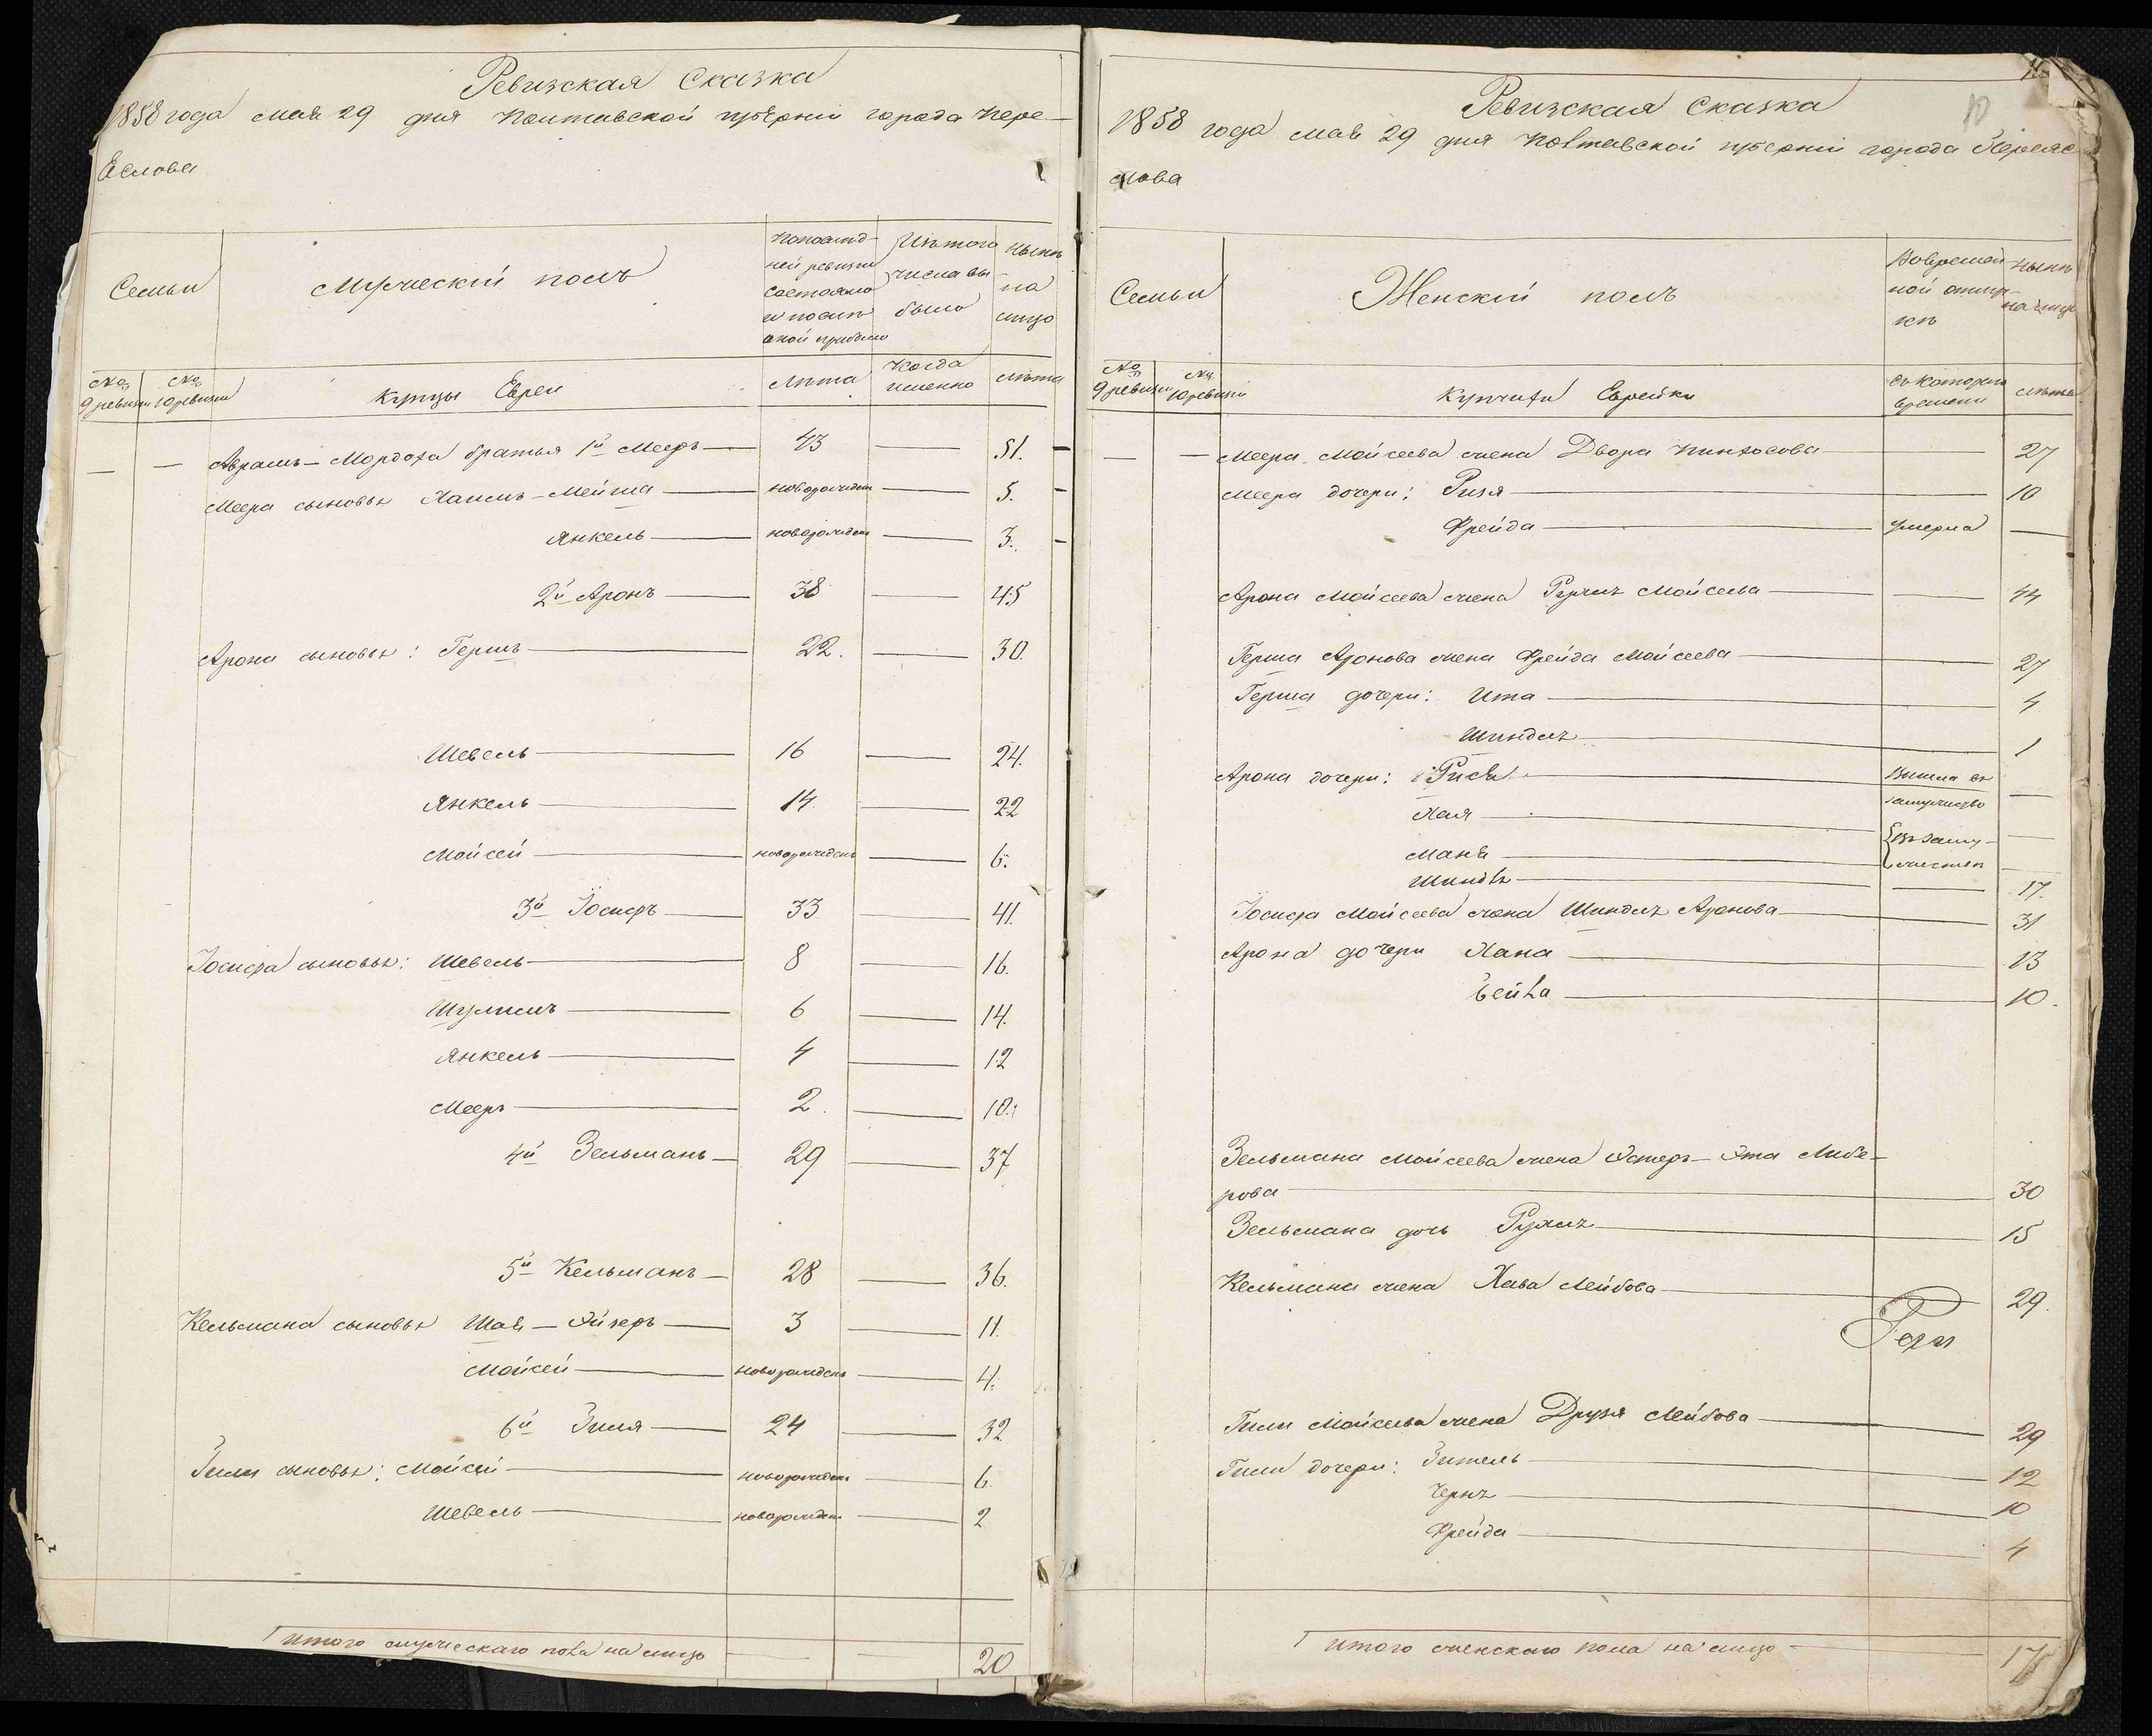 Ревизская Сказка
1858 года мая 29 дня Полтавской губерніи города Пере-
Еслова
Семьи
Мужескій полъ
По послѣд-
ней ревизіи
состояло
и послѣ
оной прибыло
Изъ того
числа вы-
было
Нынѣ
на
лицо
№
9 ревизіи
№
10 ревизіи
Купцы Евреи
Лѣта
Когда
именно
Лѣта
— — Аврамъ-Мордоха братья 1й Мееръ — 43 — 51. —
Меера сыновья Хаимъ-Мейта — новорожден — 5. —
Янкель — новорожден — 3. —
2й Аронъ — 38 — 45
Арона сыновья: Гершъ — 22. — 30.
Шевель — 16 — 24.
Янкель — 14. — 22
Мойсей — новорожденъ — 6.
3й Іосифъ — 33 — 41.
Іосифа сыновья: Шевель — 8 — 16.
Шулимъ — 6 — 14.
Янкель — 4 — 12
Мееръ — 2. — 10.
4й Зельманъ — 29 — 37
5й Кельманъ — 28 — 36.
Кельмана сыновья Шая-Эйзеръ — 3 — 11.
Мойсей — новорожденъ — 4.
6й Зиля — 24 — 32
Зили сыновья: Мойсей — новорожден — 6.
Шевель — новорожден — 2
Итого мужескаго пола на лицо — — 20
10
Ревизская Сказка
1858 года мая 29 дня Полтавской губерніи города Переяс
лова
Семьи
Женскій полъ
Во времен-
ной отлуч-
кѣ
Нынѣ
на лицо
№
9 ревизіи
№
10 ревизіи
Купчихи Еврейки
Съ котораго
времени
Лѣта
— — Меера Мойсеева жена Двора Пинхосова — — 27
Меера дочери: Рися — 10
Фрейда — умерла —
Арона Мойсеева жена Рухля Мойсеева — — 44
Герша Аронова жена Фрейда Мойсеева — 27
Герша дочери: Ита — 4
Шиндля — 1
Арона дочери: Рися — Вышла въ
замужство —
Хая —
Маня — {Въ заму-
жествѣ —
Шиндля — — 17.
Іосифа Мойсеева жена Шиндля Аронова — 31
Арона дочери Хана — 13
Бейла — 10.
Зельмана Мойсеева жена Эстеръ-Эта Либе-
рова — 30
Зельмана дочь Рухля — 15
Кельмана жена Хава Лейбова — 29.
Гили Мойсеева жена Друзя Лейбова — 29
Гили дочери: Зитель — 12
Черня — 10
Фрейда — 4
Итого женскаго пола на лицо — 17